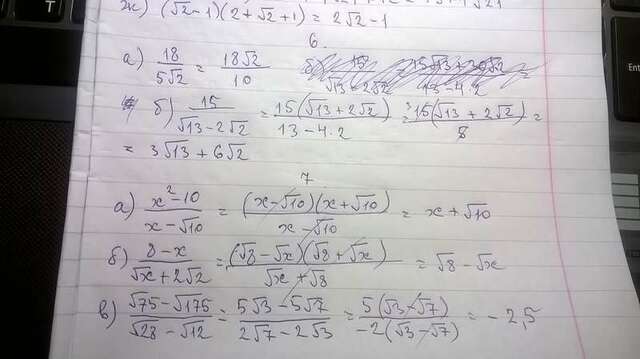 ж) (√2-1)(2+√2+1) = 2√2-1
6.
а) 18/5√2 = 18√2/10
б) 15/(√13-2√2) = 15(√13+2√2)/(13-4·2) = 15(√13+2√2)/8 =
= 3√13+6√2
7
а) (x²-10)/(x-√10) = (x-√10)(x+√10)/(x-√10) = x+√10
б) (8-x)/(√x+2√2) = (√8-√x)(√8+√x)/(√x+√8) = √8-√x
в) (√75-√175)/(√28-√12) = (5√3-5√7)/(2√7-2√3) = 5(√3-√7)/(-2(√3-√7)) = -2,5